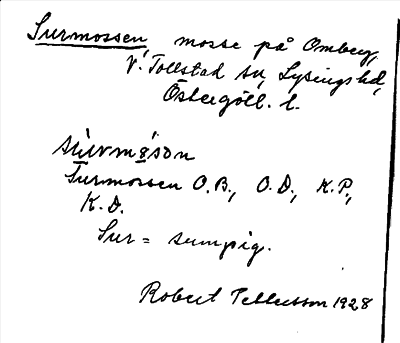 Surmossen, mosse på Omberg,
V. Tollstad sn, Lysings hd,
Östergötl. l.
sùrmɵ̀sən
Surmossen O.B., O.D., K.P.,
K.D.
Sur = sumpig.
Robert Pettersson 1928